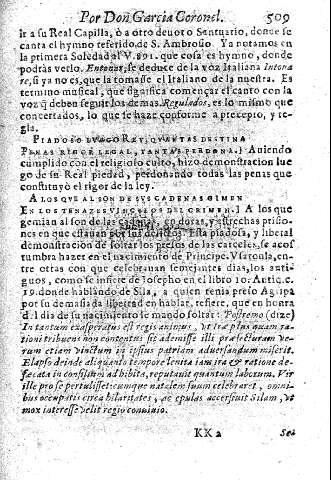 Por Don Garcia Coronel. 509
ir a su Real Capilla, ò a otro deuoto Santuario, donde se
canta el hymno referido de S. Ambrosio. Ya notamos en
la primera Soledad al V. 891. que cosa es hymno, donde
podràs verlo. Entonar, se deduce de la voz Italiana Intona
re, si ya no es, que la tomasse el Italiano de la nuestra. Es
termino musical, que significa començar el canto con la
voz q̃ deben seguir los demas. Regulados, es lo mismo que
concertados, lo que se haze conforme a precepto, y re-
gla.
PIADOSO LVEGO REY, QVANTAS DESTINA
PENAS RIGOR LEGAL, TANTAS PERDONA.] Auiendo
cumplido con el religioso culto, hizo demonstracion lue
go de su Real piedad, perdonando todas las penas que
constituyò el rigor de la ley.
A LOS QVE AL SON DE SVS CADENAS GIMEN
EN LOS TENAZES VINCVLOS DEL CRIMEN.] A los que
gemian al son de las cadenas, en duras, y estrechas prisio-
nes en que estauan por sus delitos. Esta piadosa, y liberal
demonstracion de soltar los presos de las carceles, se acos
tumbra hazer en el nacimiento de Principe. Vsaronla, en-
tre otras con que celebrauan semejantes dias, los anti-
guos, como se infiere de Iosepho en el libro 10. Antic. c.
19. donde hablando de Sila, a quien tenia preso Agripa
por su demasiada libertad en hablar, refiere, que en honra
del dia de su nacimiento le mandò soltar: Postremo (dize)
In tantum exasperatus est regis animus, ut iræ plus quam ra-
tioni tribuens non contentus sit ademisse illi præfecturam ve-
rum etiam vinctum in ipsius patriam aduersandum miserit.
Elapso deinde aliquando tempore lenita iam ira & ratione de-
fæcata in consilium adhibita, reputauit quantum laborum. Vir
ille pro se pertulisset: cumque natalem suum celebraret, omni-
bus occupatis circa hilaritates, ac epulas accersiuit Silam, ut
mox interesse velit regio conuiuio.
KK 2 Sea